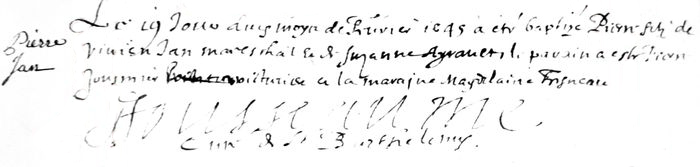 Pierre
Jan
Le 19 Jour du moys de febvrier 1645 a été baptizé Pierre filz de
vivien Jan mareschal et de Suzanne Ayrault le parain a esté Pierre
Jousmier voicturier et la marayne Magdelaine
Curé de St Barthelemy